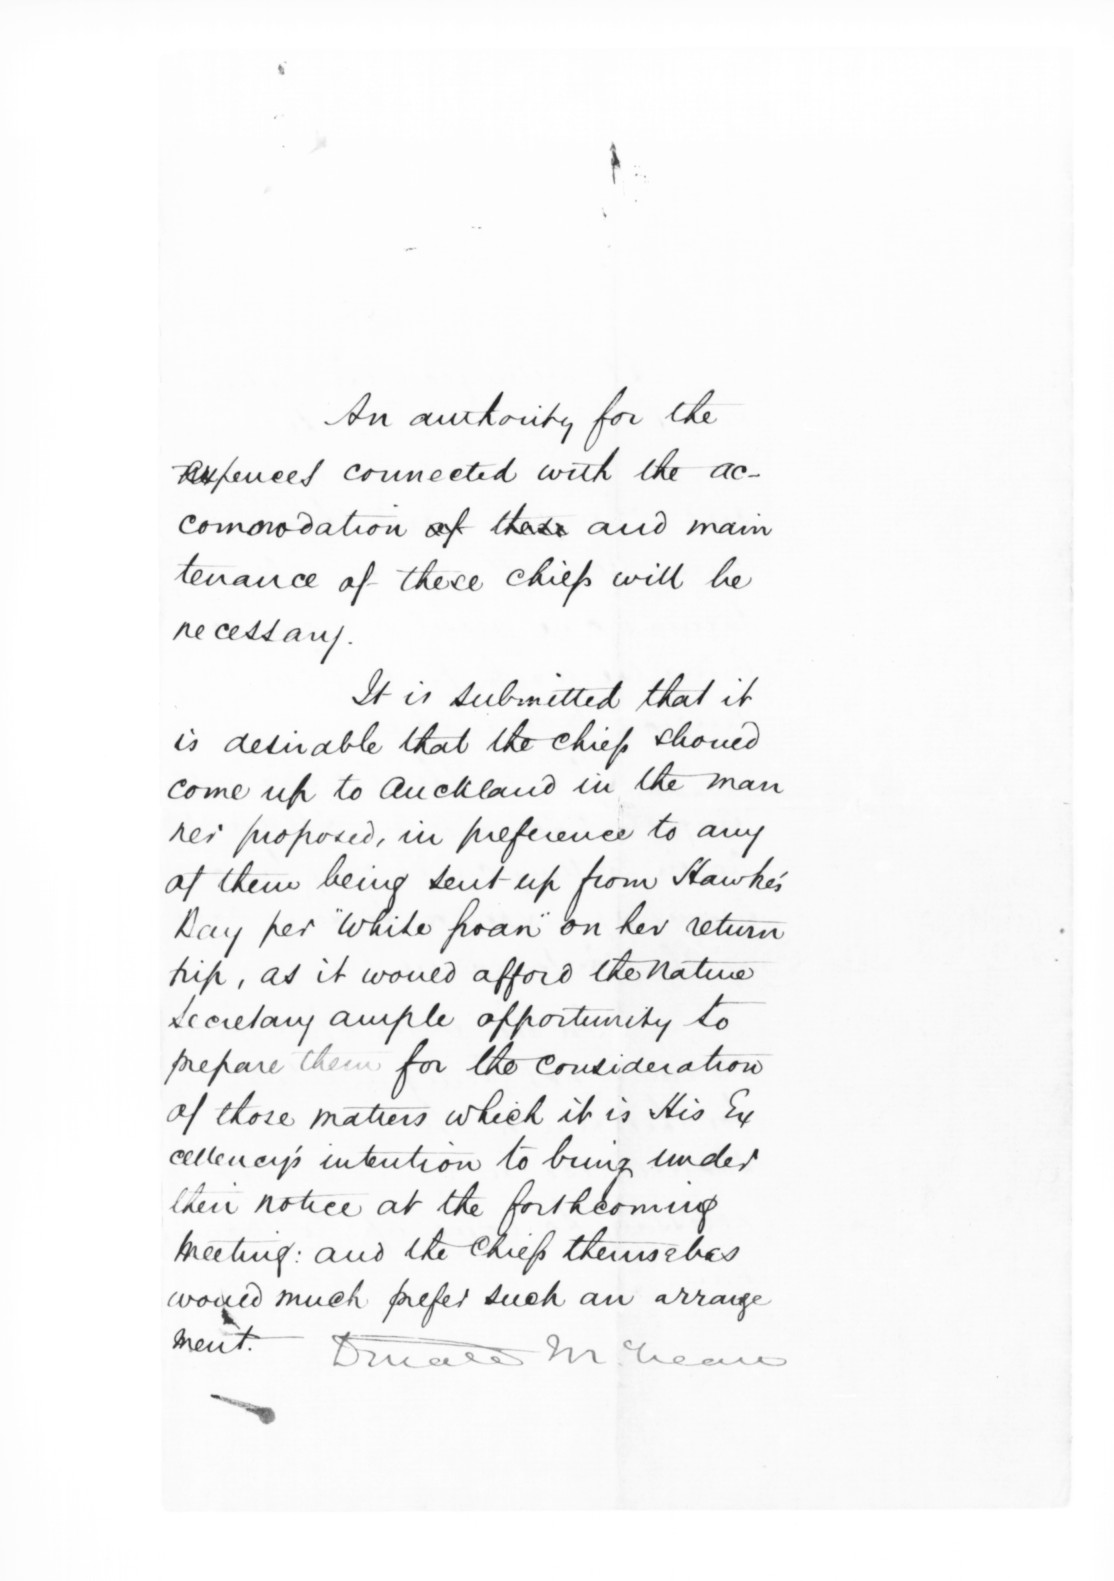 An authority for the
expences connected with the ac-
commodation of these and main
tenance of these chiefs will be
necessary.
It is submitted that it
is desirable that the chiefs should
come up to Auckland in the man
ner proposed, in preference to any
of them being sent up from Hawke's
Bay per "White Swan" on her return
trip, as it would afford the Native
Secretary ample opportunity to
prepare them for the consideration
of those matters which it is His Ex
cellency's intention to bring under
their notice at the forthcoming
meeting: and the chiefs themselves
would much prefer such an arrange
ment. Donald McLean